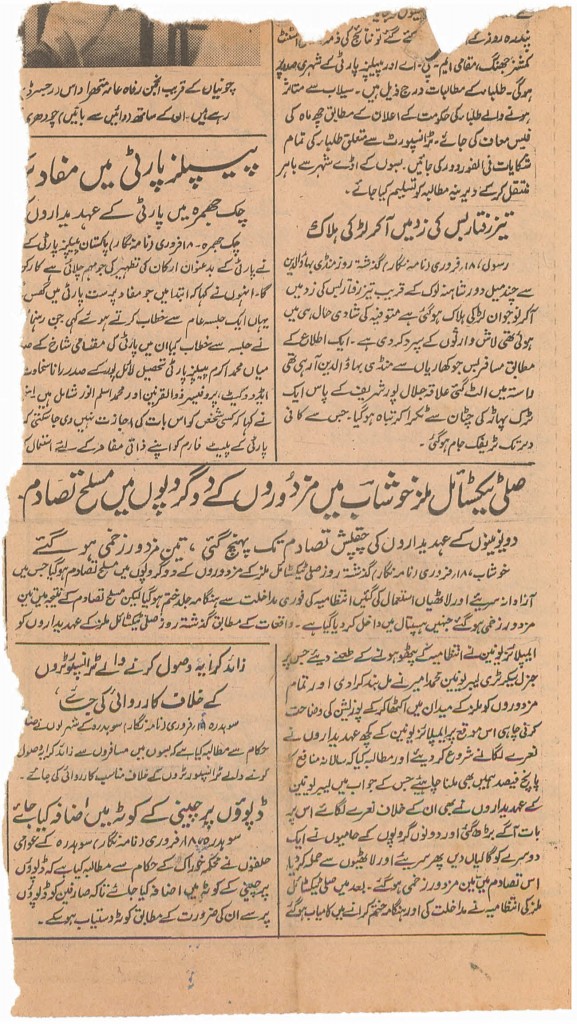 پندرہ روز کے
کمشنر جھنگ، مقامی ایم۔پی۔اے اور پیپلز پارٹی کے شہری صدر پر
ہوگی۔ طلباء کے مطالبات درج ذیل ہیں۔ سیلاب سے متاثر
ہونے والے طلباء کی حکومت کے اعلان کے مطابق چھ ماہ کی
فیس معاف کی جائے۔ ٹرانسپورٹ سے متعلق طلباء کی تمام
شکایات فی الفور دور کی جائیں۔ بسوں کے اڈے شہر سے باہر
منتقل کرنے کے دیرینہ مطالبہ کو تسلیم کیا جائے۔
تیز رفتار بس کی زد میں آکر لڑکی ہلاک
رسول، ۱۸ فروری (نامہ نگار) گذشتہ روز منڈی بہاؤالدین
سے چند میل دور شاہنہ لوک کے قریب تیز رفتار بس کی زد میں
آکر نوجوان لڑکی ہلاک ہوگئی ہے متوفیہ کی شادی حال ہی میں
ہوئی تھی لاش وارثوں کے سپرد کر دی ہے۔ ایک اطلاع کے
مطابق مسافر بس جو کھاریاں سے منڈی بہاؤ الدین آ رہی تھی
راستہ میں الٹ گئی علاقہ جلال پور شریف کے پاس ایک
ٹرک پہاڑ کی چٹان سے ٹکرا کر تباہ ہوگیا۔ جس سے کافی
دیر تک ٹریفک جام ہوگئی۔
چونیاں کے قریب انجمن رفاہ عامہ تھرا داس رجسٹرڈ
رہے ہیں۔ ان کے ساتھ دوائیں سے بائیں) چودھری
پیپلز پارٹی میں مفاد
چک جھمرہ میں پارٹی کے عہدیداروں
چک جھمرہ۔ ۱۸ فروری (نامہ نگار) پاکستان پیپلز پارٹی کے
نے پارٹی کے بدعنوان ارکان کی تطہیر کی جو مہم چلائی ہے
گا۔ انہوں نے کہا کہ ابتدا میں جو مفاد پرست پارٹی میں گھس
یہاں ایک جلسہ عام سے خطاب کرتے ہوئے کہی جن
نے جلسہ سے خطاب کیا ان میں پارٹی کی مقامی شاخ کے
میاں محمد اکرم پیپلز پارٹی تحصیل لائل پور کے صدر
ایڈووکیٹ، پروفیسر ذوالقرنین اور محمد اسلم انور شامل ہیں
نے کہا کہ کسی شخص کو اس بات کی اجازت نہیں دی جا سکتی کہ
پارٹی کے پلیٹ فارم کو اپنے ذاتی مفاد کے لئے استعمال
صلی ٹیکسٹائل ملز خوشاب میں مزدوروں کے دو گروپوں میں مسلح تصادم۔
دو یونینوں کے عہدیداروں کی چپقلش تصادم تک پہنچ گئی، تین مزدور زخمی ہو گئے
خوشاب، ۱۸ فروری (نامہ نگار) گذشتہ روز صلی ٹیکسٹائل ملز کے مزدوروں کے دو گروپوں میں مسلح تصادم ہو گیا جس میں
آزادانہ سریے اور لاٹھیاں استعمال کی گئیں انتظامیہ کی فوری مداخلت سے ہنگامہ جلد ختم ہو گیا لیکن مسلح تصادم کے نتیجہ میں تین
مزدور زخمی ہو گئے جنہیں ہسپتال میں داخل کر دیا گیا ہے۔ واقعات کے مطابق گذشتہ روز صلی ٹیکسٹائل ملز کے عہدیداروں کو
ایمپلائز یونین نے انتظامیہ کے پٹھو ہونے کے طعنے دیئے جس پر
جنرل سیکرٹری لیبر یونین محمد امیر نے مل بند کرا دی اور تمام
مزدوروں کو ملز کے میدان میں اکٹھا کر کے پوزیشن کی وضاحت
کرنی چاہی اس موقع پر ایمپلائز یونین کے کچھ عہدیداروں نے
نعرے لگانے شروع کر دیئے اور مطالبہ کیا کہ سالانہ منافع کا
پانچ فیصد ہمیں بھی ملنا چاہیئے جس کے جواب میں لیبر یونین
کے عہدیداروں نے بھی ان کے خلاف نعرے لگائے اس پر
بات آگے بڑھ گئی اور دونوں گروپوں کے حامیوں نے ایک
دوسرے کو گالیاں دیں پھر سریے اور لاٹھیوں سے حملہ کر دیا
اس تصادم میں تین مزدور زخمی ہو گئے۔ بعد میں صلی ٹیکسٹائل
ملز کی انتظامیہ نے مداخلت کی اور ہنگامہ ختم کرانے میں کامیاب ہو گئے
زائد کرایہ وصول کرنے والے ٹرانسپورٹروں
کے خلاف کارروائی کی جائے
سوہدرہ ۱۸ فروری (نامہ نگار) سوہدرہ کے شہریوں نے
حکام سے مطالبہ کیا ہے کہ بسوں میں مسافروں سے زائد کرایہ وصول
کرنے والے ٹرانسپورٹروں کے خلاف مناسب کارروائی کی جائے۔
ڈپوؤں پر چینی کے کوٹہ میں اضافہ کیا جائے
سوہدرہ، ۱۸ فروری (نامہ نگار) سوہدرہ کے عوامی
حلقوں نے محکمہ خوراک کے حکام سے مطالبہ کیا ہے کہ ڈپوؤں
پر چینی کے کوٹہ میں اضافہ کیا جائے تاکہ صارفین کو ڈپوؤں
پر سے ان کی ضرورت کے مطابق کوٹہ دستیاب ہو سکے۔